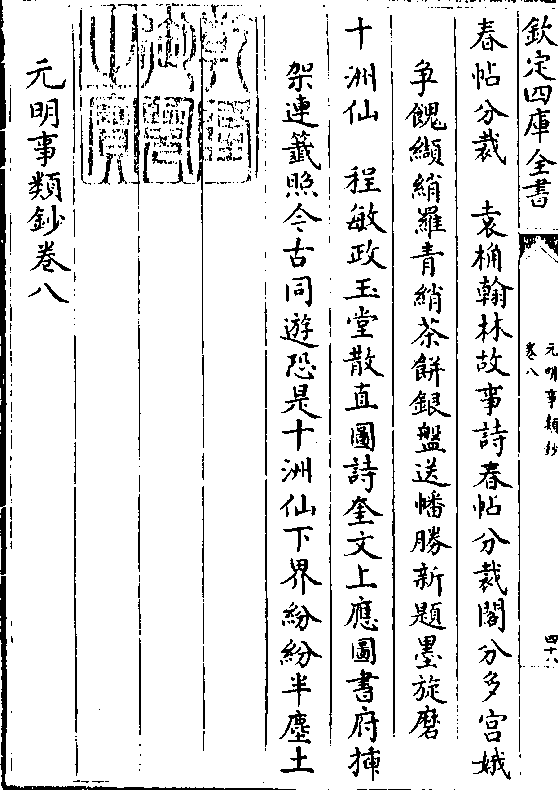 欽定四庫全書
元明事類鈔
卷八
四十八
春帖分裁　袁桷翰林故事詩春帖分裁閣分多宮娥
爭餽纈綃羅青綃茶餅銀盤送幡勝新題墨旋磨
十洲仙　程敏政玉堂散直圖詩奎文上應圖書府挿
架連籤照今古同遊恐是十洲仙下界紛紛半塵土
元明事類鈔卷八